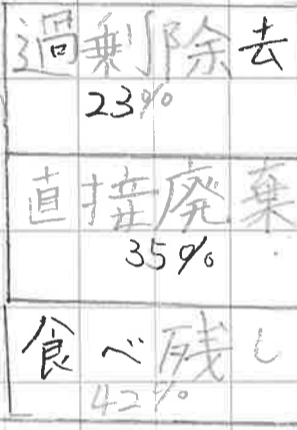 過剰除去
23%
直接廃棄
35%
食べ残し
42%